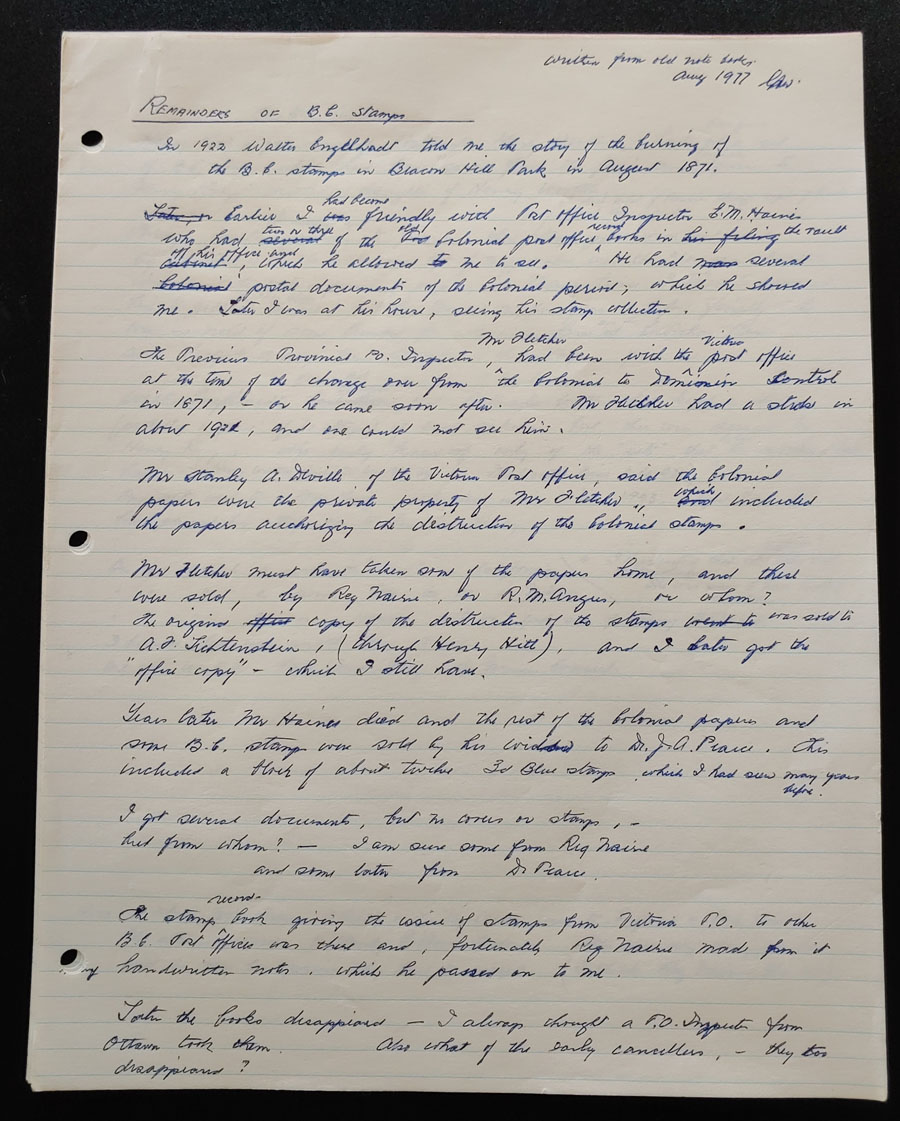 Written from old note books.
Aug 1977
REMAINDERS OF B.C. Stamps
In 1922 Walter Englehardt told me the story of the burning of
the B.C. stamps in Beacon Hill Park in August 1871.
had become
Later, or Earlier I was friendly with Post office Inspector E.M. Haines
two or three old record
who had several of the Colonial post office books in his filing the vault
of his office and
cabinet, which he allowed to me to see. He had several
Colonial postal documents of the Colonial period; which he showed
me. Later I was at his house, seeing his stamp collection.
Mr Fletcher Victoria
The Previous Provincial P.O. Inspector, had been with the post office
at the time of the change over from the Colonial to Dominion Control
in 1871, - or he came soon after. Mr Fletcher had a stroke in
about 1922, and one could not see him.
Mr Stanley A. Deville of the Victoria Post office, said the Colonial
which
papers were the private property of Mr Fletcher, and included
the papers authorizing the destruction of the Colonial stamps.
Mr Fletcher must have taken some of the papers home, and these
were sold, by Reg Nairie, or R.M. Angus, or whom?
The original office copy of the distruction of the stamps went to was sold to
A.F. Lichtenstein, (through Henry Hitt), and I later got the
"office copy" - which I still have.
Years later Mr Haines died and the rest of the Colonial papers and
some B.C. stamps were sold by his widow to Dr. J.A. Pearce. This
included a block of about twelve 3d Blue stamps which I had seen many years
before.
I got several documents, but no covers or stamps, -
but from whom? - I am sure some from Reg Nairie
and some later from Dr Pearce.
record
The stamp book giving the issue of stamps from Victoria P.O. to other
B.C. Post Offices was there and, fortunately Reg Nairie made from it
my handwritten notes. which he passed on to me.
Later the books disappeard - I always thought a P.O. Inspector from
Ottawa took them. Also what of the early cancellers, - they too
disappeard?